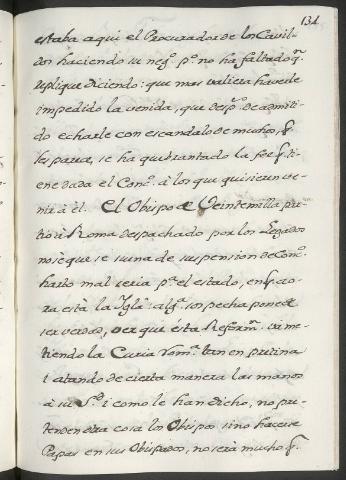 131
estaba aqui el Procurador de los Cavil-
dos haciendo su neg.º p.º no ha faltado q.
replique diciendo: que mas valiera haverle
impedido la venida, que desp.s de admiti-
do echarle con escandalo de muchos, q.
les parece, se ha quebrantado la fee q. ti-
ene dada el Conc.º à los que quisieren ve-
nir à él. El Obispo de Veintemilla par-
tio à Roma despachado por los Legados
no sè que se suena de suspension de Conc.º
harto mal seria p.ª el estado, en q. ao-
ra està la Ygl.ª alg.ª sospecha pone de
ser verdad, ver que ésta Reform.n va me-
tiendo la Curia Rom.ª tan en pretina
i atando de cierta manera las manos
à su S.d i como le han dicho, no pre-
tenden otra cosa los Obispos sino hacerse
Papas en sus Obispados, no será mucho q.